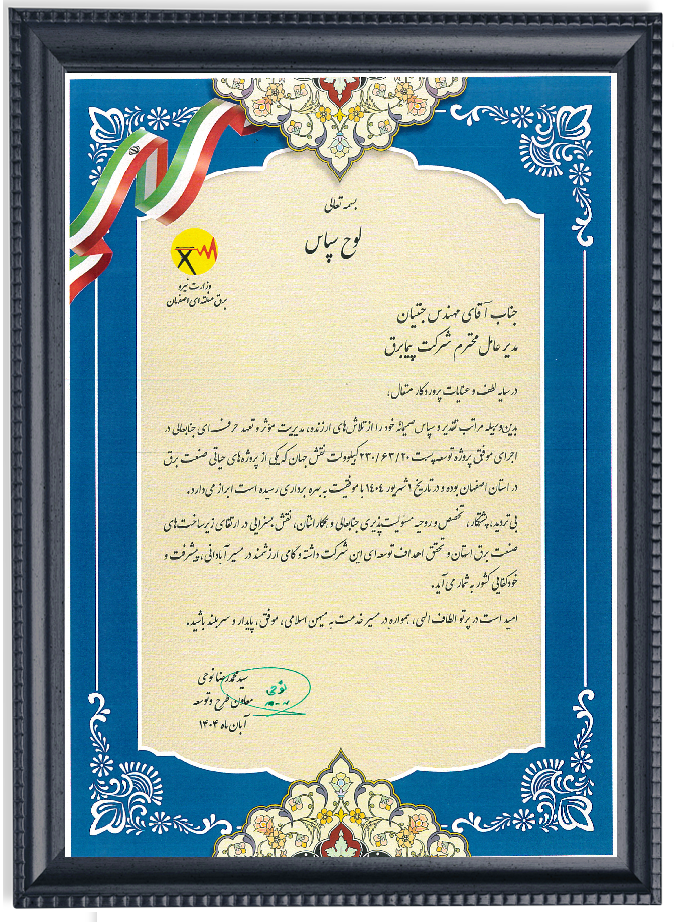 بسمه تعالی
لوح سپاس
وزارت نیرو
برق منطقه‌ای اصفهان
جناب آقای مهندس جنتیان
مدیر عامل محترم شرکت پیمابرق
در سایه لطف و عنایات پروردگار متعال،
بدین‌وسیله مراتب تقدیر و سپاس صمیمانه خود را از تلاش‌های ارزنده، مدیریت موثر و تعهد حرفه‌ای جنابعالی در
اجرای موفق پروژه توسعه پست ۲۳۰/۶۳/۲۰ کیلوولت نقش جهان که یکی از پروژه‌های حیاتی صنعت برق
در استان اصفهان بوده و در تاریخ ۹ شهریور ۱۴۰۴ با موفقیت به بهره برداری رسیده است ابراز می‌دارد.
بی تردید، پشتکار، تخصص و روحیه مسئولیت‌پذیری جنابعالی و همکارانتان، نقش بسزایی در ارتقای زیرساخت‌های
صنعت برق استان و تحقق اهداف توسعه‌ای این شرکت داشته و گامی ارزشمند در مسیر آبادانی، پیشرفت و
خودکفایی کشور به شمار می‌آید.
امید است در پرتو الطاف الهی، همواره در مسیر خدمت به میهن اسلامی، موفق، پایدار و سربلند باشید.
سید محمدرضا نوحی
معاون طرح و توسعه
آبان ماه ۱۴۰۴
نوحی